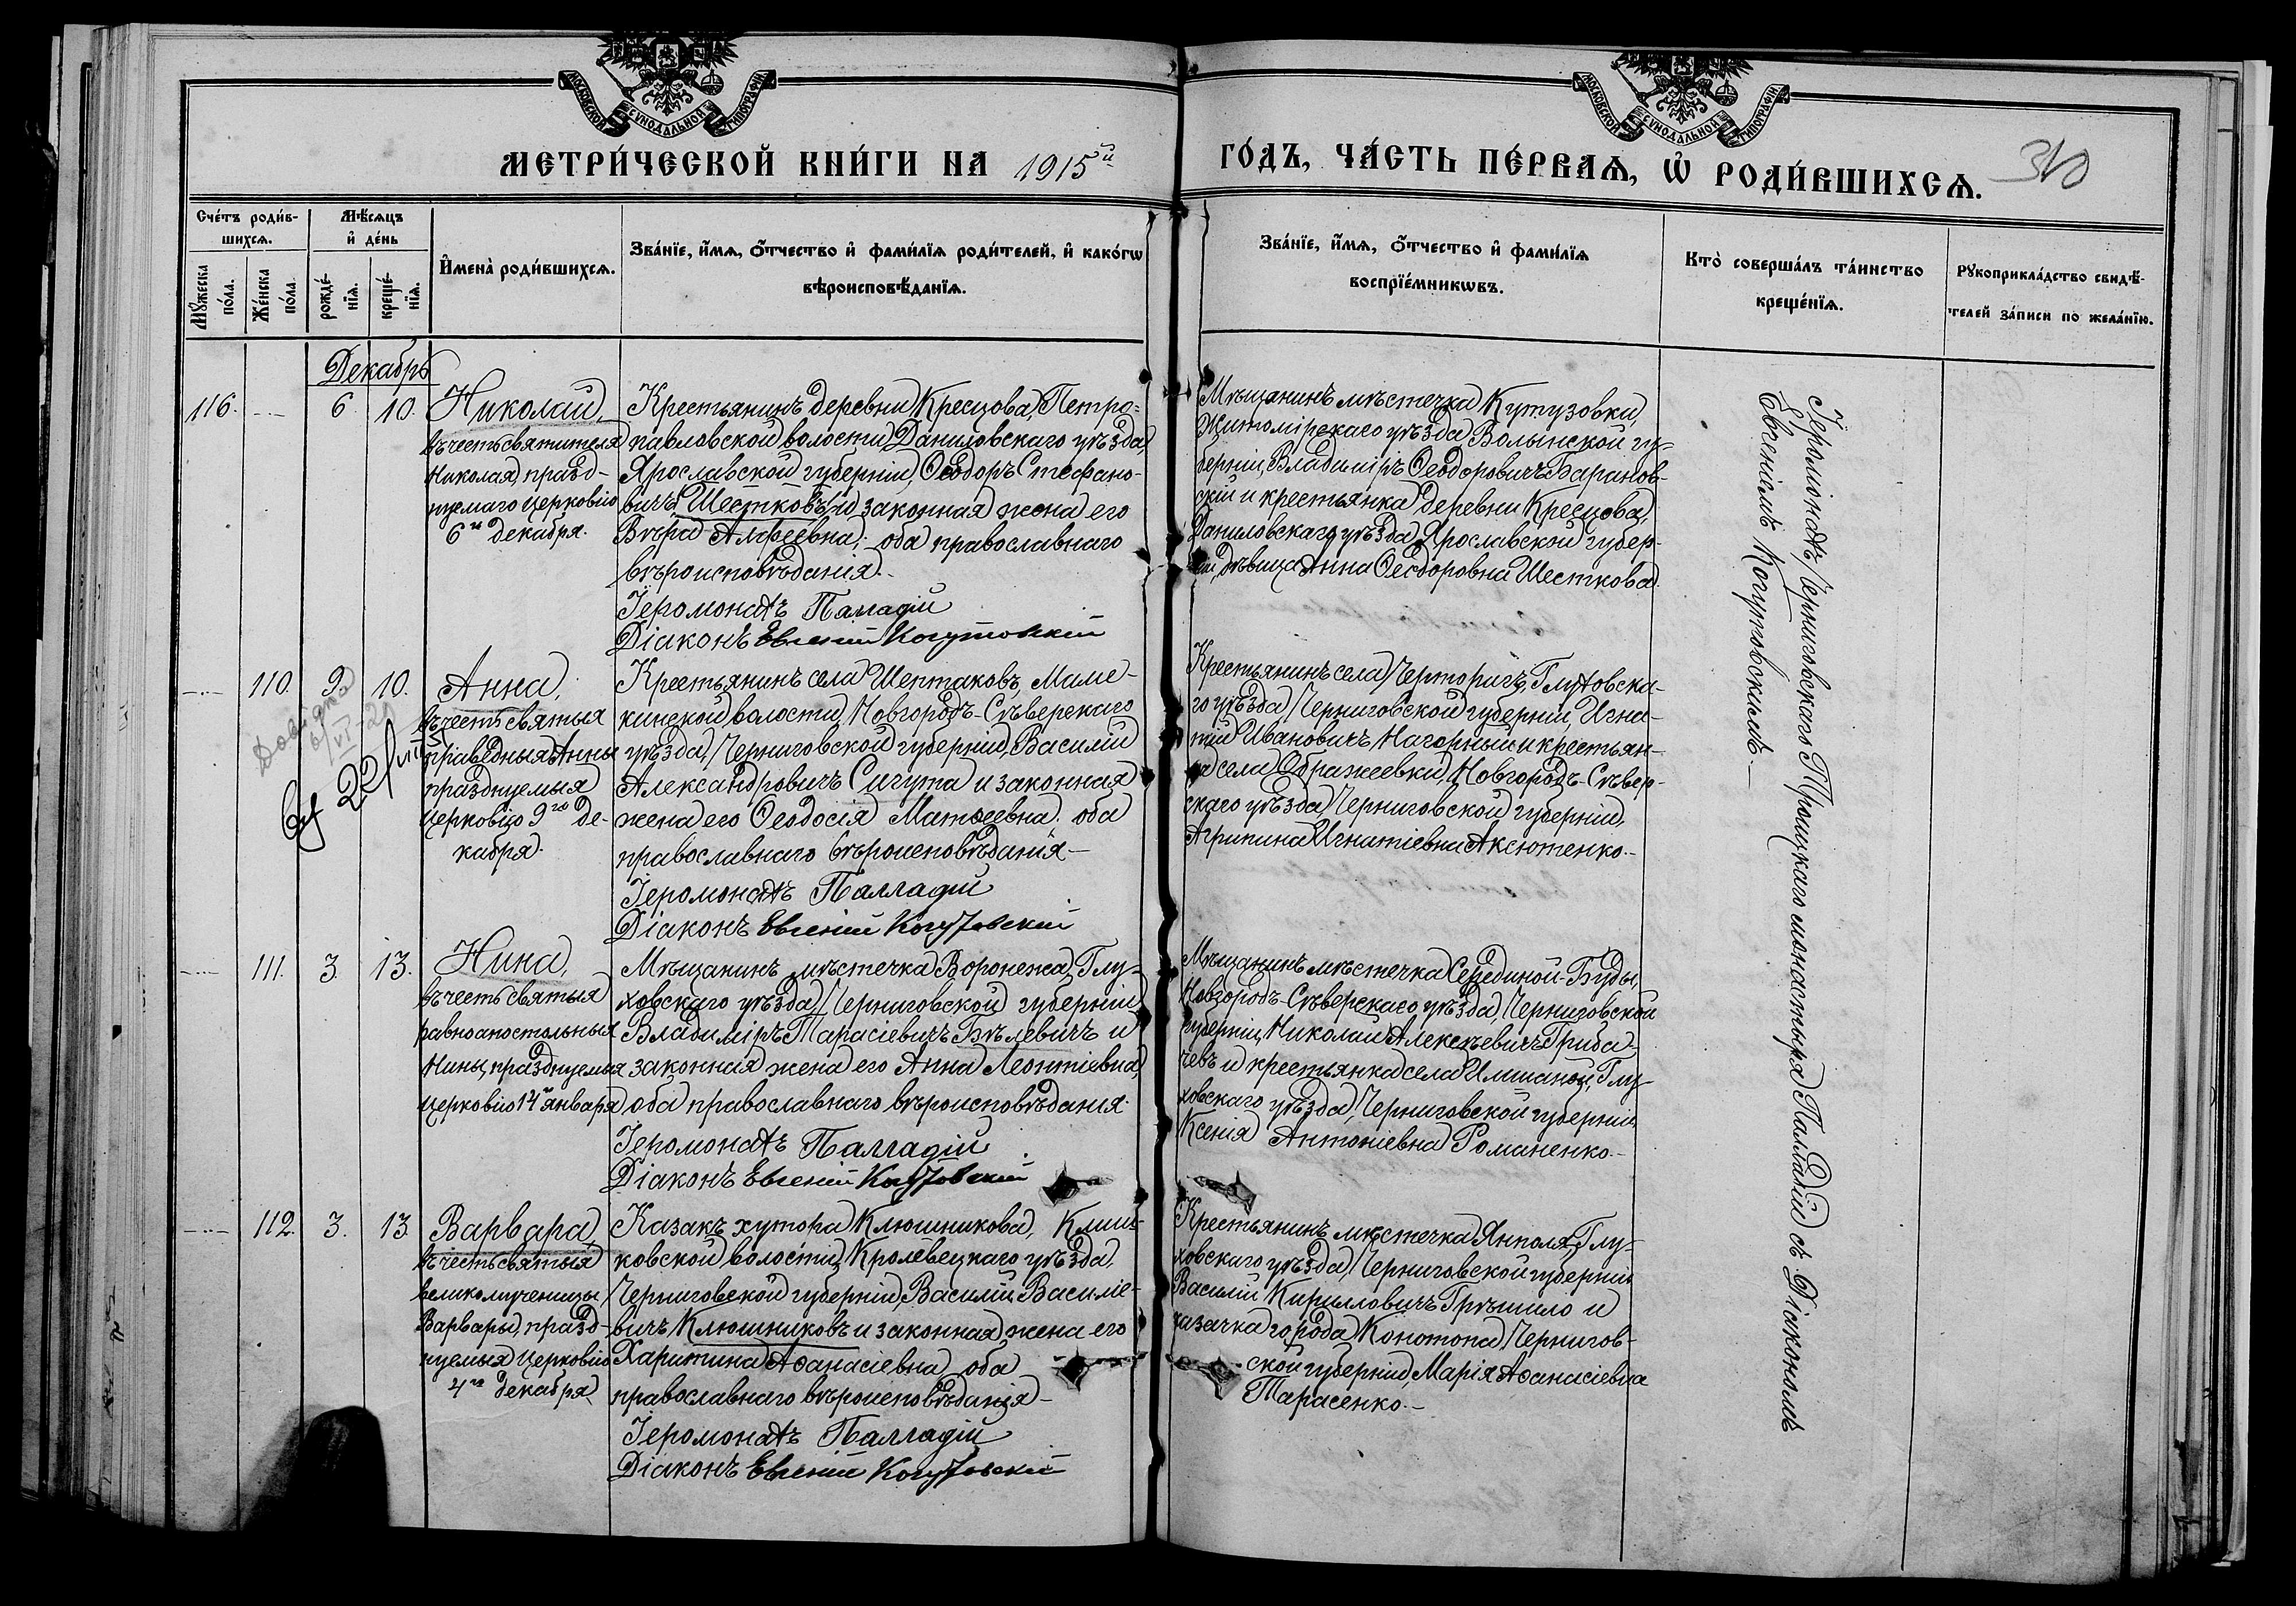 МОСКОВСКОЙ СѴНОДАЛЬНОЙ ТИПОГРАФІИ
МОСКОВСКОЙ СѴНОДАЛЬНОЙ ТИПОГРАФІИ
МЕТРИ́ЧЕСКОЙ КНИ́ГИ НА 1915й
ГО́ДЪ, ЧА́СТЬ ПЕ́РВАѦ, Ѡ РОДИ́ВШИХСѦ.
Сче́тъ роди́в-
шихсѧ.
Мꙋ́жеска
по́ла.
Же́нска
по́ла.
Мѣ́сѧцъ
и҆ де́нь
рожде́-
нїѧ.
креще́-
нїѧ.
И҆мена̀ роди́вшихсѧ.
Зва́нїе, и҆́мѧ, ѻ҆́тчество и҆ фами́лїѧ роди́телей, и҆ како́гѡ
вѣроисповѣ́данїѧ.
Зва́нїе, и҆́мѧ, ѻ҆́тчество и҆ фами́лїѧ
воспрїе́мникѡвъ.
Кто̀ соверша́лъ та́инство
креще́нїѧ.
Рꙋкоприкла́дство свидѣ́-
телей за́писи по жела́нїю.
Декабрь
116.
6.
10.
Николай,
въ честь святителя
Николая, празд-
нуемаго церковію
6го декабря.
Крестьянинъ деревни Кресцова, Петро-
павловской волости, Даниловскаго уѣзда,
Ярославской губерніи, Ѳеодоръ Стефано-
вичъ Шестковъ и законная жена его
Вѣра Алфеевна, оба православнаго
вѣроисповѣданія.
Іеромонахъ Палладій
Діаконъ Евгеній Когутовскій
Мѣщанинъ мѣстечка Кутузовки,
Житомірскаго уѣзда Волынской гу-
берніи, Владиміръ Ѳеодоровичъ Баранов-
скій и крестьянка деревни Кресцова,
Даниловскаго уѣзда Ярославской губер-
ніи, дѣвица Анна Ѳеодоровна Шесткова.
110.
9.
10.
Анна,
въ честь святыя
праведныя Анны
празднуемыя
церковію 9го де-
кабря.
Крестьянинъ села Шептаковъ, Маме-
кинской волости, Новгородъ-Сѣверскаго
уѣзда, Черниговской губерніи, Василій
Александровичъ Сигута и законная
жена его Ѳеодосія Матѳеевна, оба
православнаго вѣроисповѣданія
Іеромонахъ Палладій
Діаконъ Евгеній Когутовскій
Крестьянинъ села Черторигъ, Глуховска-
го уѣзда, Черниговской губерніи, Игна-
тій Ивановичъ Нагорный и крестьян-
ка села Ображеевки, Новгородъ-Сѣвер-
скаго уѣзда Черниговской губерніи,
Агрипина Игнатіевна Аксютенко.
111.
3.
13.
Нина,
въ честь святыя
равноапостольныя
Нины, празднуемыя
церковію 14го января
Мѣщанинъ мѣстечка Воронежа, Глу-
ховскаго уѣзда, Черниговской губерніи,
Владиміръ Тарасіевичъ Бѣлевичъ и
законная жена его Анна Леонтіевна,
оба православнаго вѣроисповѣданія.
Іеромонахъ Палладій
Діаконъ Евгеній Когутовскій
Мѣщанинъ мѣстечка Середины-Буды,
Новгородъ-Сѣверскаго уѣзда, Черниговской
губерніи, Николай Алексѣевичъ Гриба-
чевъ и крестьянка села Имшаной, Глу-
ховскаго уѣзда, Черниговской губерніи
Ксенія Антоніевна Романенко.
112.
3.
13.
Варвара,
въ честь святыя
великомученицы
Варвары, празд-
нуемыя церковію
4го декабря
Казакъ хутора Клюшникова, Клиш-
ковской волости, Кролевецкаго уѣзда,
Черниговской губерніи, Василій Василіе-
вичъ Клюшниковъ и законная жена его
Харитина Аѳанасіевна, оба
православнаго вѣроисповѣданія
Іеромонахъ Палладій
Діаконъ Евгеній Когутовскій
Крестьянинъ мѣстечка Янполя, Глу-
ховскаго уѣзда, Черниговской губерніи
Василій Кирилловичъ Грѣшило и
казачка города Конотопа Чернигов-
ской губерніи, Марія Аѳанасіевна
Тарасенко.
Іеромонахъ Черниговскаго Троицкаго монастыря Палладій съ Діакономъ
Евгеніемъ Когутовскимъ.